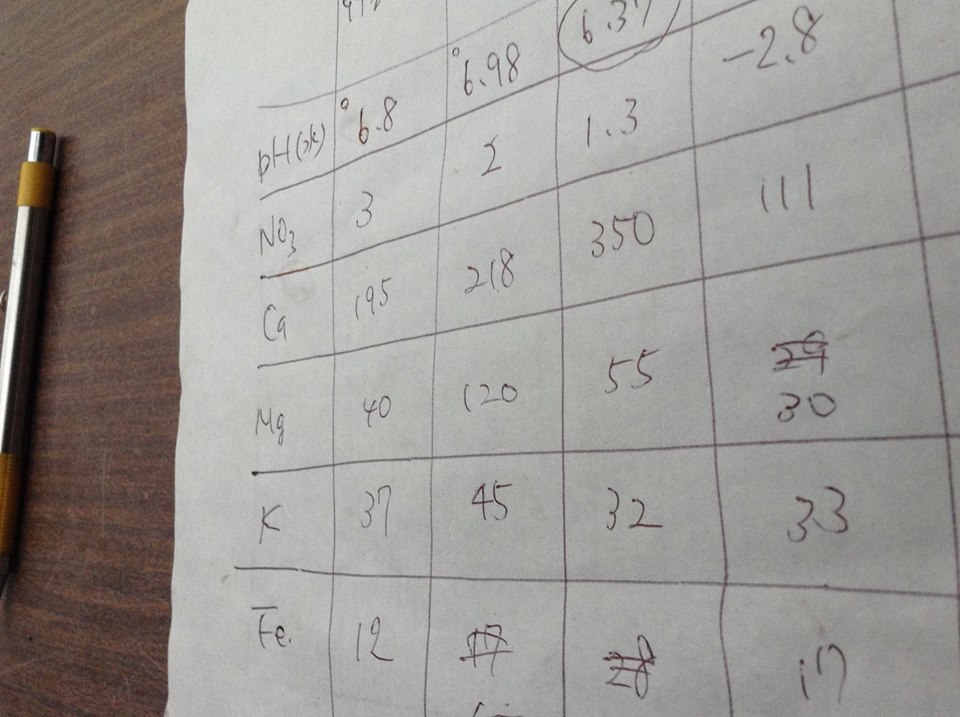 pH(ok) 6.8 6.98 6.37
NO3 3 2 1.3 -2.8
Ca 195 218 350 111
Mg 40 120 55 29
30
K 37 45 32 33
Fe. 12 17 28 17